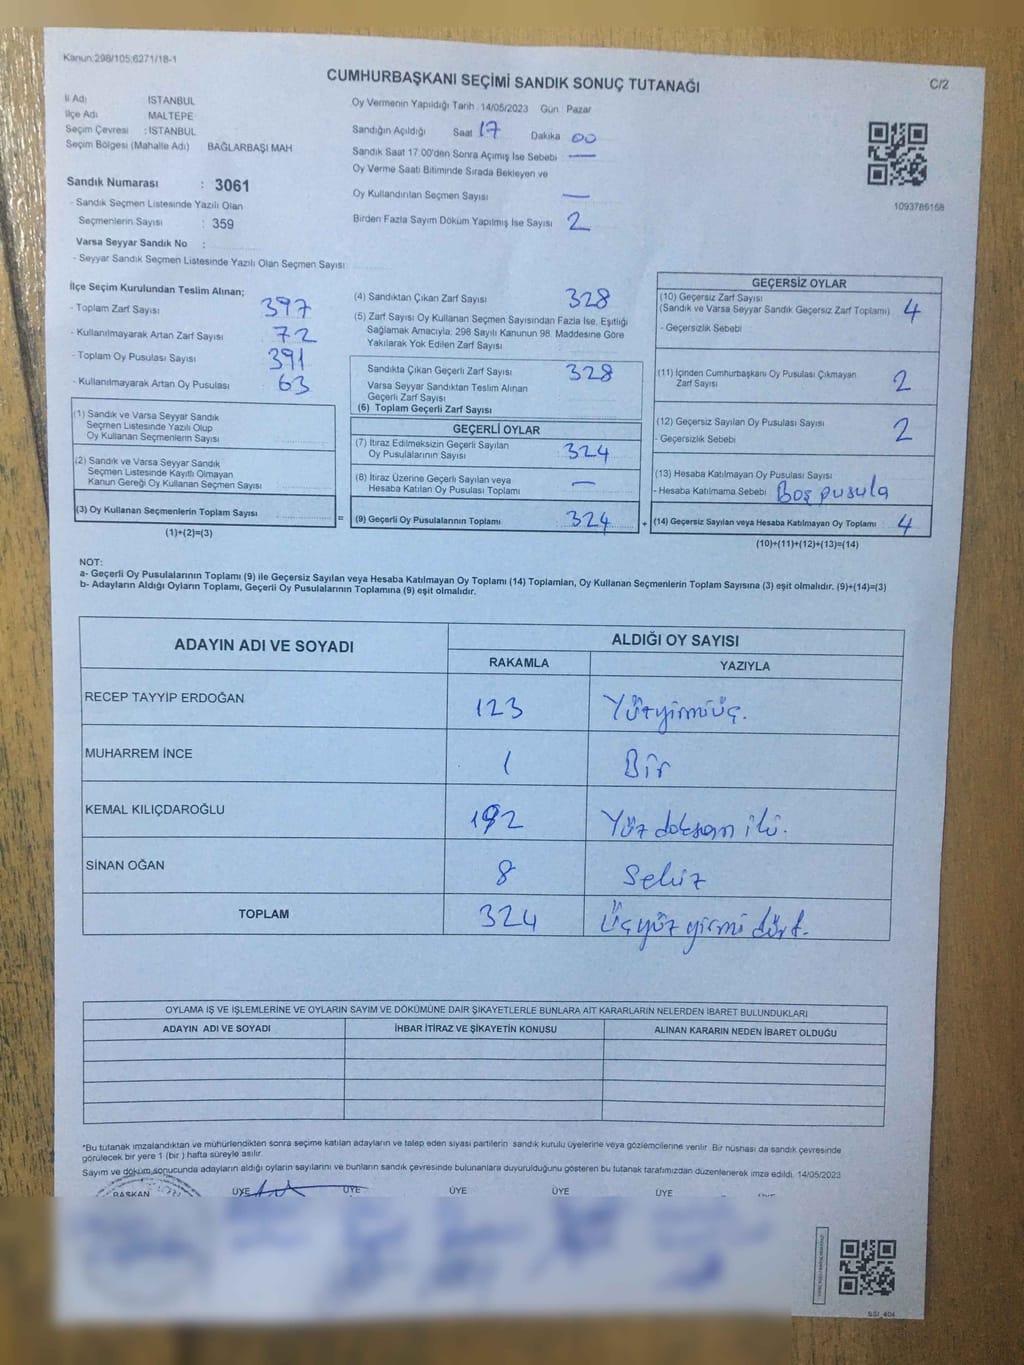 Kanun:298/105;6271/18-1
CUMHURBAŞKANI SEÇİMİ SANDIK SONUÇ TUTANAĞI
C/2
İl Adı İSTANBUL
İlçe Adı MALTEPE
Seçim Çevresi : İSTANBUL
Seçim Bölgesi (Mahalle Adı) BAĞLARBAŞI MAH
Sandık Numarası : 3061
- Sandık Seçmen Listesinde Yazılı Olan
Seçmenlerin Sayısı : 359
Varsa Seyyar Sandık No :
- Seyyar Sandık Seçmen Listesinde Yazılı Olan Seçmen Sayısı
Oy Vermenin Yapıldığı Tarih : 14/05/2023 Gün : Pazar
Sandığın Açıldığı Saat 17 Dakika 00
Sandık Saat 17:00'den Sonra Açımış İse Sebebi —
Oy Verme Saati Bitiminde Sırada Bekleyen ve
Oy Kullandırılan Seçmen Sayısı —
Birden Fazla Sayım Döküm Yapılmış İse Sayısı 2
1093786168
İlçe Seçim Kurulundan Teslim Alınan;
- Toplam Zarf Sayısı 397
- Kullanılmayarak Artan Zarf Sayısı 72
- Toplam Oy Pusulası Sayısı 391
- Kullanılmayarak Artan Oy Pusulası 63
(1) Sandık ve Varsa Seyyar Sandık
Seçmen Listesinde Yazılı Olup
Oy Kullanan Seçmenlerin Sayısı
(2) Sandık ve Varsa Seyyar Sandık
Seçmen Listesinde Kayıtlı Olmayan
Kanun Gereği Oy Kullanan Seçmen Sayısı
(3) Oy Kullanan Seçmenlerin Toplam Sayısı =
(1)+(2)=(3)
(4) Sandıktan Çıkan Zarf Sayısı 328
(5) Zarf Sayısı Oy Kullanan Seçmen Sayısından Fazla İse, Eşitliği
Sağlamak Amacıyla; 298 Sayılı Kanunun 98. Maddesine Göre
Yakılarak Yok Edilen Zarf Sayısı
Sandıkta Çıkan Geçerli Zarf Sayısı 328
Varsa Seyyar Sandıktan Teslim Alınan
Geçerli Zarf Sayısı
(6) Toplam Geçerli Zarf Sayısı
GEÇERLİ OYLAR
(7) İtiraz Edilmeksizin Geçerli Sayılan
Oy Pusulalarının Sayısı 324
(8) İtiraz Üzerine Geçerli Sayılan veya
Hesaba Katılan Oy Pusulası Toplamı —
(9) Geçerli Oy Pusulalarının Toplamı 324 +
GEÇERSİZ OYLAR
(10) Geçersiz Zarf Sayısı
(Sandık ve Varsa Seyyar Sandık Geçersiz Zarf Toplamı) 4
- Geçersizlik Sebebi
(11) İçinden Cumhurbaşkanı Oy Pusulası Çıkmayan
Zarf Sayısı 2
(12) Geçersiz Sayılan Oy Pusulası Sayısı 2
- Geçersizlik Sebebi
(13) Hesaba Katılmayan Oy Pusulası Sayısı
- Hesaba Katılmama Sebebi Boş pusula
(14) Geçersiz Sayılan veya Hesaba Katılmayan Oy Toplamı 4
(10)+(11)+(12)+(13)=(14)
NOT:
a- Geçerli Oy Pusulalarının Toplamı (9) ile Geçersiz Sayılan veya Hesaba Katılmayan Oy Toplamı (14) Toplamları, Oy Kullanan Seçmenlerin Toplam Sayısına (3) eşit olmalıdır. (9)+(14)=(3)
b- Adayların Aldığı Oyların Toplamı, Geçerli Oy Pusulalarının Toplamına (9) eşit olmalıdır.
ADAYIN ADI VE SOYADI ALDIĞI OY SAYISI
RAKAMLA YAZIYLA
RECEP TAYYİP ERDOĞAN 123 Yüzyirmiüç.
MUHARREM İNCE 1 Bir
KEMAL KILIÇDAROĞLU 192 Yüz doksan iki.
SİNAN OĞAN 8 Sekiz
TOPLAM 324 Üçyüz yirmi dört.
OYLAMA İŞ VE İŞLEMLERİNE VE OYLARIN SAYIM VE DÖKÜMÜNE DAİR ŞİKAYETLERLE BUNLARA AİT KARARLARIN NELERDEN İBARET BULUNDUKLARI
ADAYIN ADI VE SOYADI İHBAR İTİRAZ VE ŞİKAYETİN KONUSU ALINAN KARARIN NEDEN İBARET OLDUĞU
*Bu tutanak imzalandıktan ve mühürlendikten sonra seçime katılan adayların ve talep eden siyasi partilerin sandık kurulu üyelerine veya gözlemcilerine verilir. Bir nüshası da sandık çevresinde
görülecek bir yere 1 (bir) hafta süreyle asılır.
Sayım ve döküm sonucunda adayların aldığı oyların sayılarını ve bunların sandık çevresinde bulunanlara duyurulduğunu gösteren bu tutanak tarafımızdan düzenlenerek imza edildi. 14/05/2023
BAŞKAN ÜYE ÜYE ÜYE ÜYE ÜYE